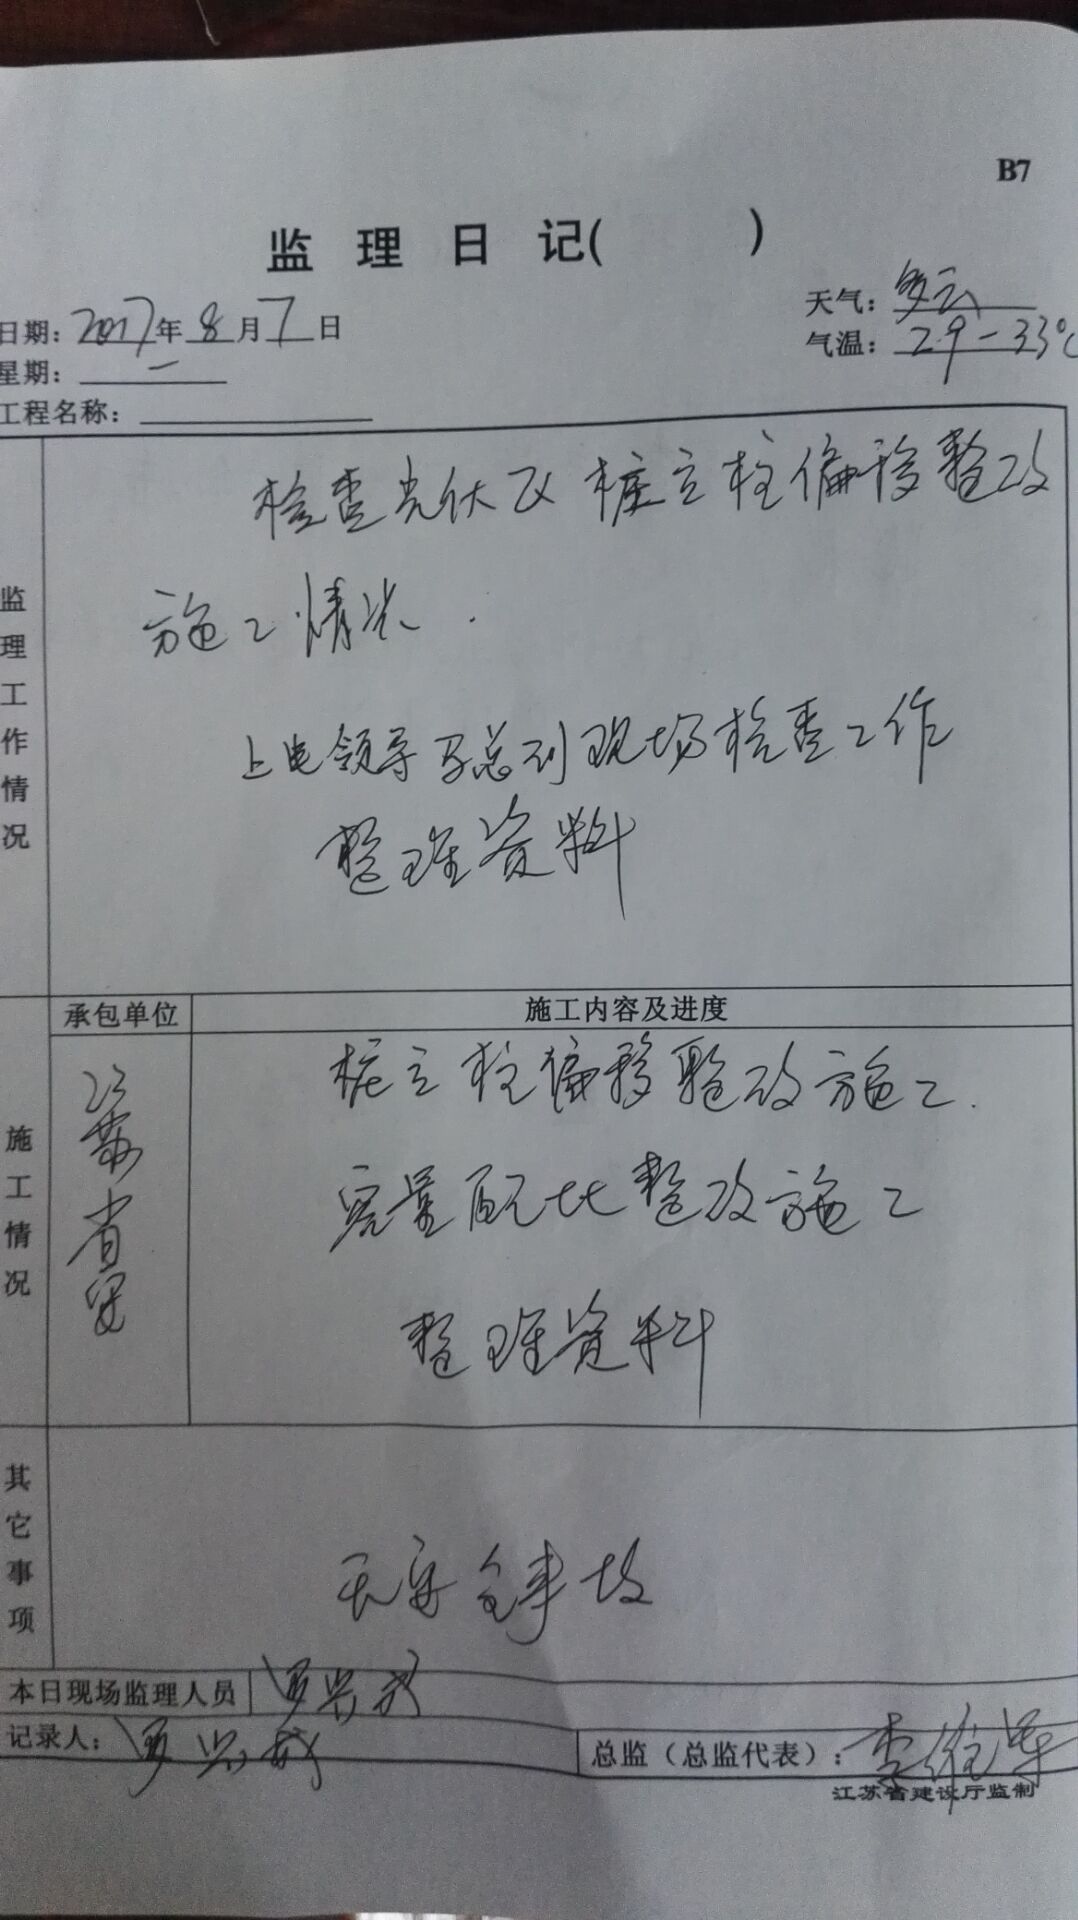 B7
监理日记(　　)
日期：2017年8月7日
天气：多云
星期：一
气温：29-33℃
工程名称：
监理工作情况
检查光伏区桩立柱偏移整改
施工情况.
上电领导 总到现场检查工作
整理资料
承包单位
施工内容及进度
施工情况
江苏省安
桩立柱偏移整改施工.
容量配比整改施工
整理资料
其它事项
无安全事故
本日现场监理人员
记录人：
总监（总监代表）：李
江苏省建设厅监制